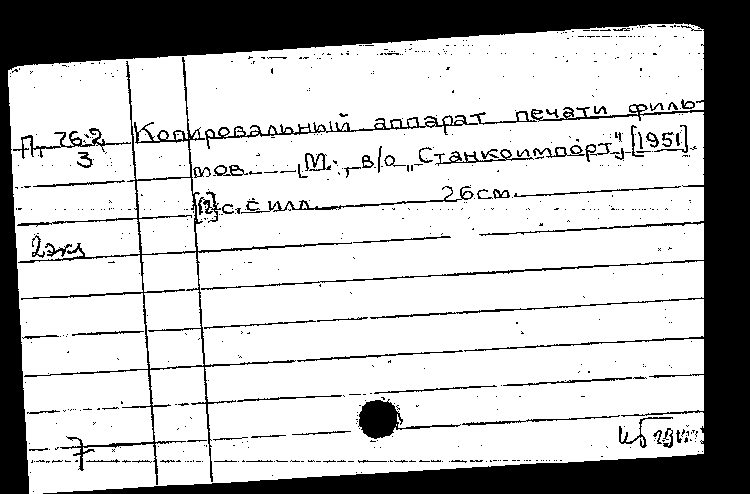 Пт 76-2 Копировальный аппарат печати филь-
3
мов. [М., в/о „Станкоимпорт", [1951].
[12] с. с илл. 26 см.
2 экз
7